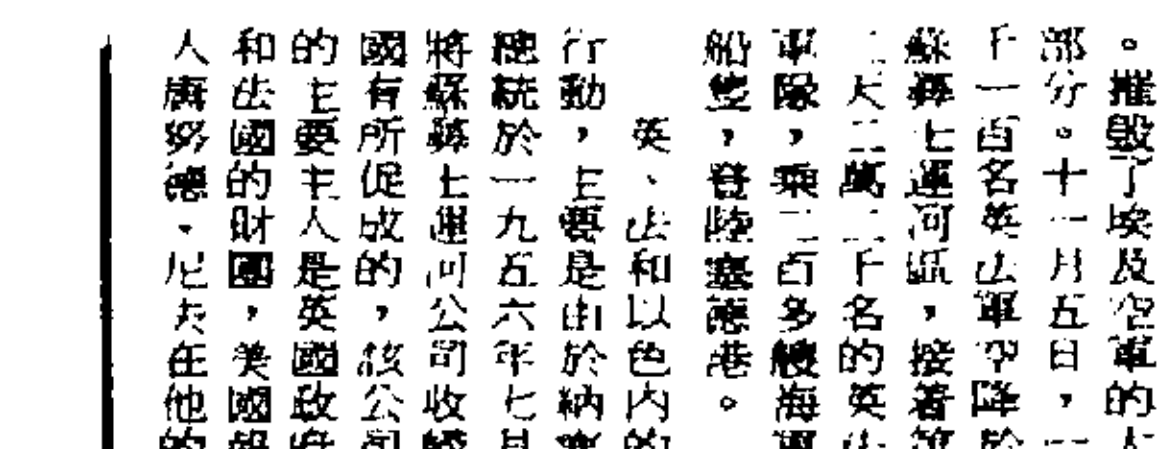 。摧毀了埃及空軍的大
部分。十一月五日，一
千一百名英法軍空降於
蘇彝士運河區，接著第
二天二萬二千名的英法
軍隊，乘二百多艘海軍
船隻，登陸塞德港。
英、法和以色內的
行動，主要是由於納塞
總統於一九五六年七月
將蘇彝士運河公司收歸
國有所促成的，該公司
的主要主人是英國政府
和法國的財團，美國
人唐努德・尼夫在他的